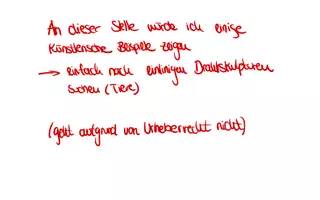 An dieser Stelle würde ich einige
Künstlerische Beispiele zeigen
→ einfach nach einlinigen Drahtskulpturen
suchen (Tiere)
(geht aufgrund von Urheberrecht nicht)